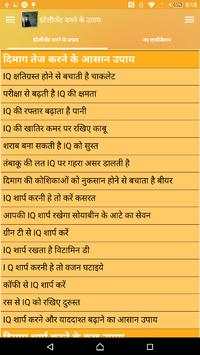 इंटेलीजेंट बनने के उपाय
इंटेलीजेंट बनने के उपाय
दिमाग तेज करने के आसान उपाय
IQ क्षतिग्रस्त होने से बचाती है चाकलेट
परीक्षा से बढ़ती है IQ की क्षमता
IQ की रफ्तार बढ़ाता है पानी
IQ की खातिर कमर पर रखिए काबू
शराब बना सकती है IQ को सुस्त
तंबाकू की लत IQ पर गहरा असर डालती है
दिमाग की कोशिकाओं को नुकसान होने से बचाता है बीयर
IQ शार्प करनी है तो करें कसरत
आपकी IQ शार्प रखेगा सोयाबीन के आटे का सेवन
ग्रीन टी से IQ शार्प करें
IQ शार्प रखता है विटामिन डी
I Q शार्प करनी है तो वजन घटाइये
कॉफी से IQ शार्प करें
रस से IQ को रखिए दुरुस्त
IQ शार्प करने और याददाश्त बढ़ाने का आसान उपाय